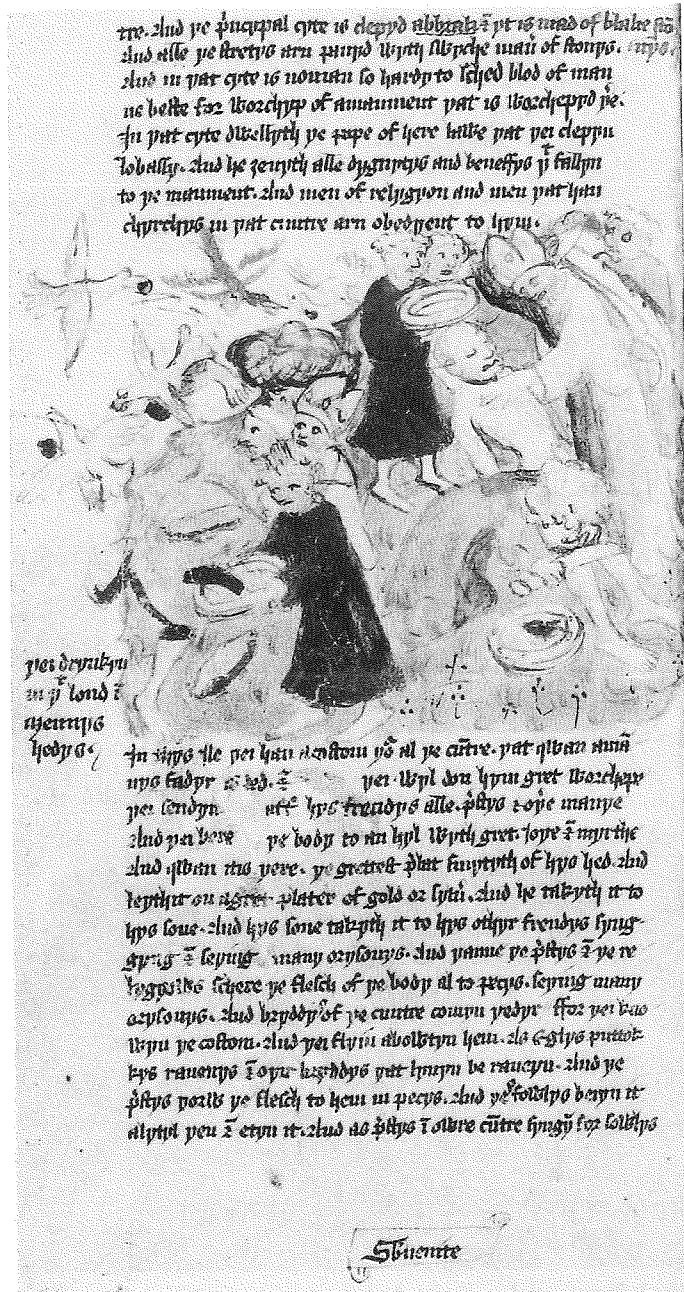 tre. And þe p̄ncypal cyte is clepyd abbrak ⁊ yt is mad of blake stōnys.
And alle þe stretys arn pauyd wyth swyche man̄ of stonys.
And in þat cyte is noman so hardy to sched blod of man
ne beste for worchyp of amaument þat is worcheppyd þe.
In þat cyte dwellyth þe pope of here lawe þat þei clepyn
lobassy. And he ȝeuyth alle dygnyteys and beneffys þt fallyn
to þe maument. And men of relygyon and men þat han
chyrchys in þat cuntre arn obedyent to hym.
þei drynkyn
in þt lond ī
mennys
hedys.
In thys yle þei han a custom þow al þe cūtre. þat qwan amā
nys fadyr is ded. ⁊ þei wyl don hym gret worchepp
þei sendyn aft hys frendys alle. p̄stys ⁊ oþe manye
And þei bere þe body to an hyl wyth gret joye ⁊ myrthe
And qwan itis þere. þe grettest p̄lat smytyth of hys hed. And
leyth it on a gret plater of gold or sylu̇. And he takyth it to
hys sone. And hys sone takyth it to hys othyr frendys syng
gyng ⁊ seying many orysonys. And þanne þe p̄stys ⁊ þe re
legyows schere þe flesch of þe body al to pecys. seying many
orysonys. And bryddys of þe cuntre comyn þedyr ffor þei kno
wyn þe costom. And þei flyin abowtyn hem. As Eglys puttok
kys rauenys ⁊ oþr bryddys þat louyn be raueyn. And þe
p̄stys þorw þe flesch to hem in pecys. And þe fowlys beryn it
alytyl þen ⁊ etyn it. And as p̄stys ī owre cūtre syngȳ for sowlys